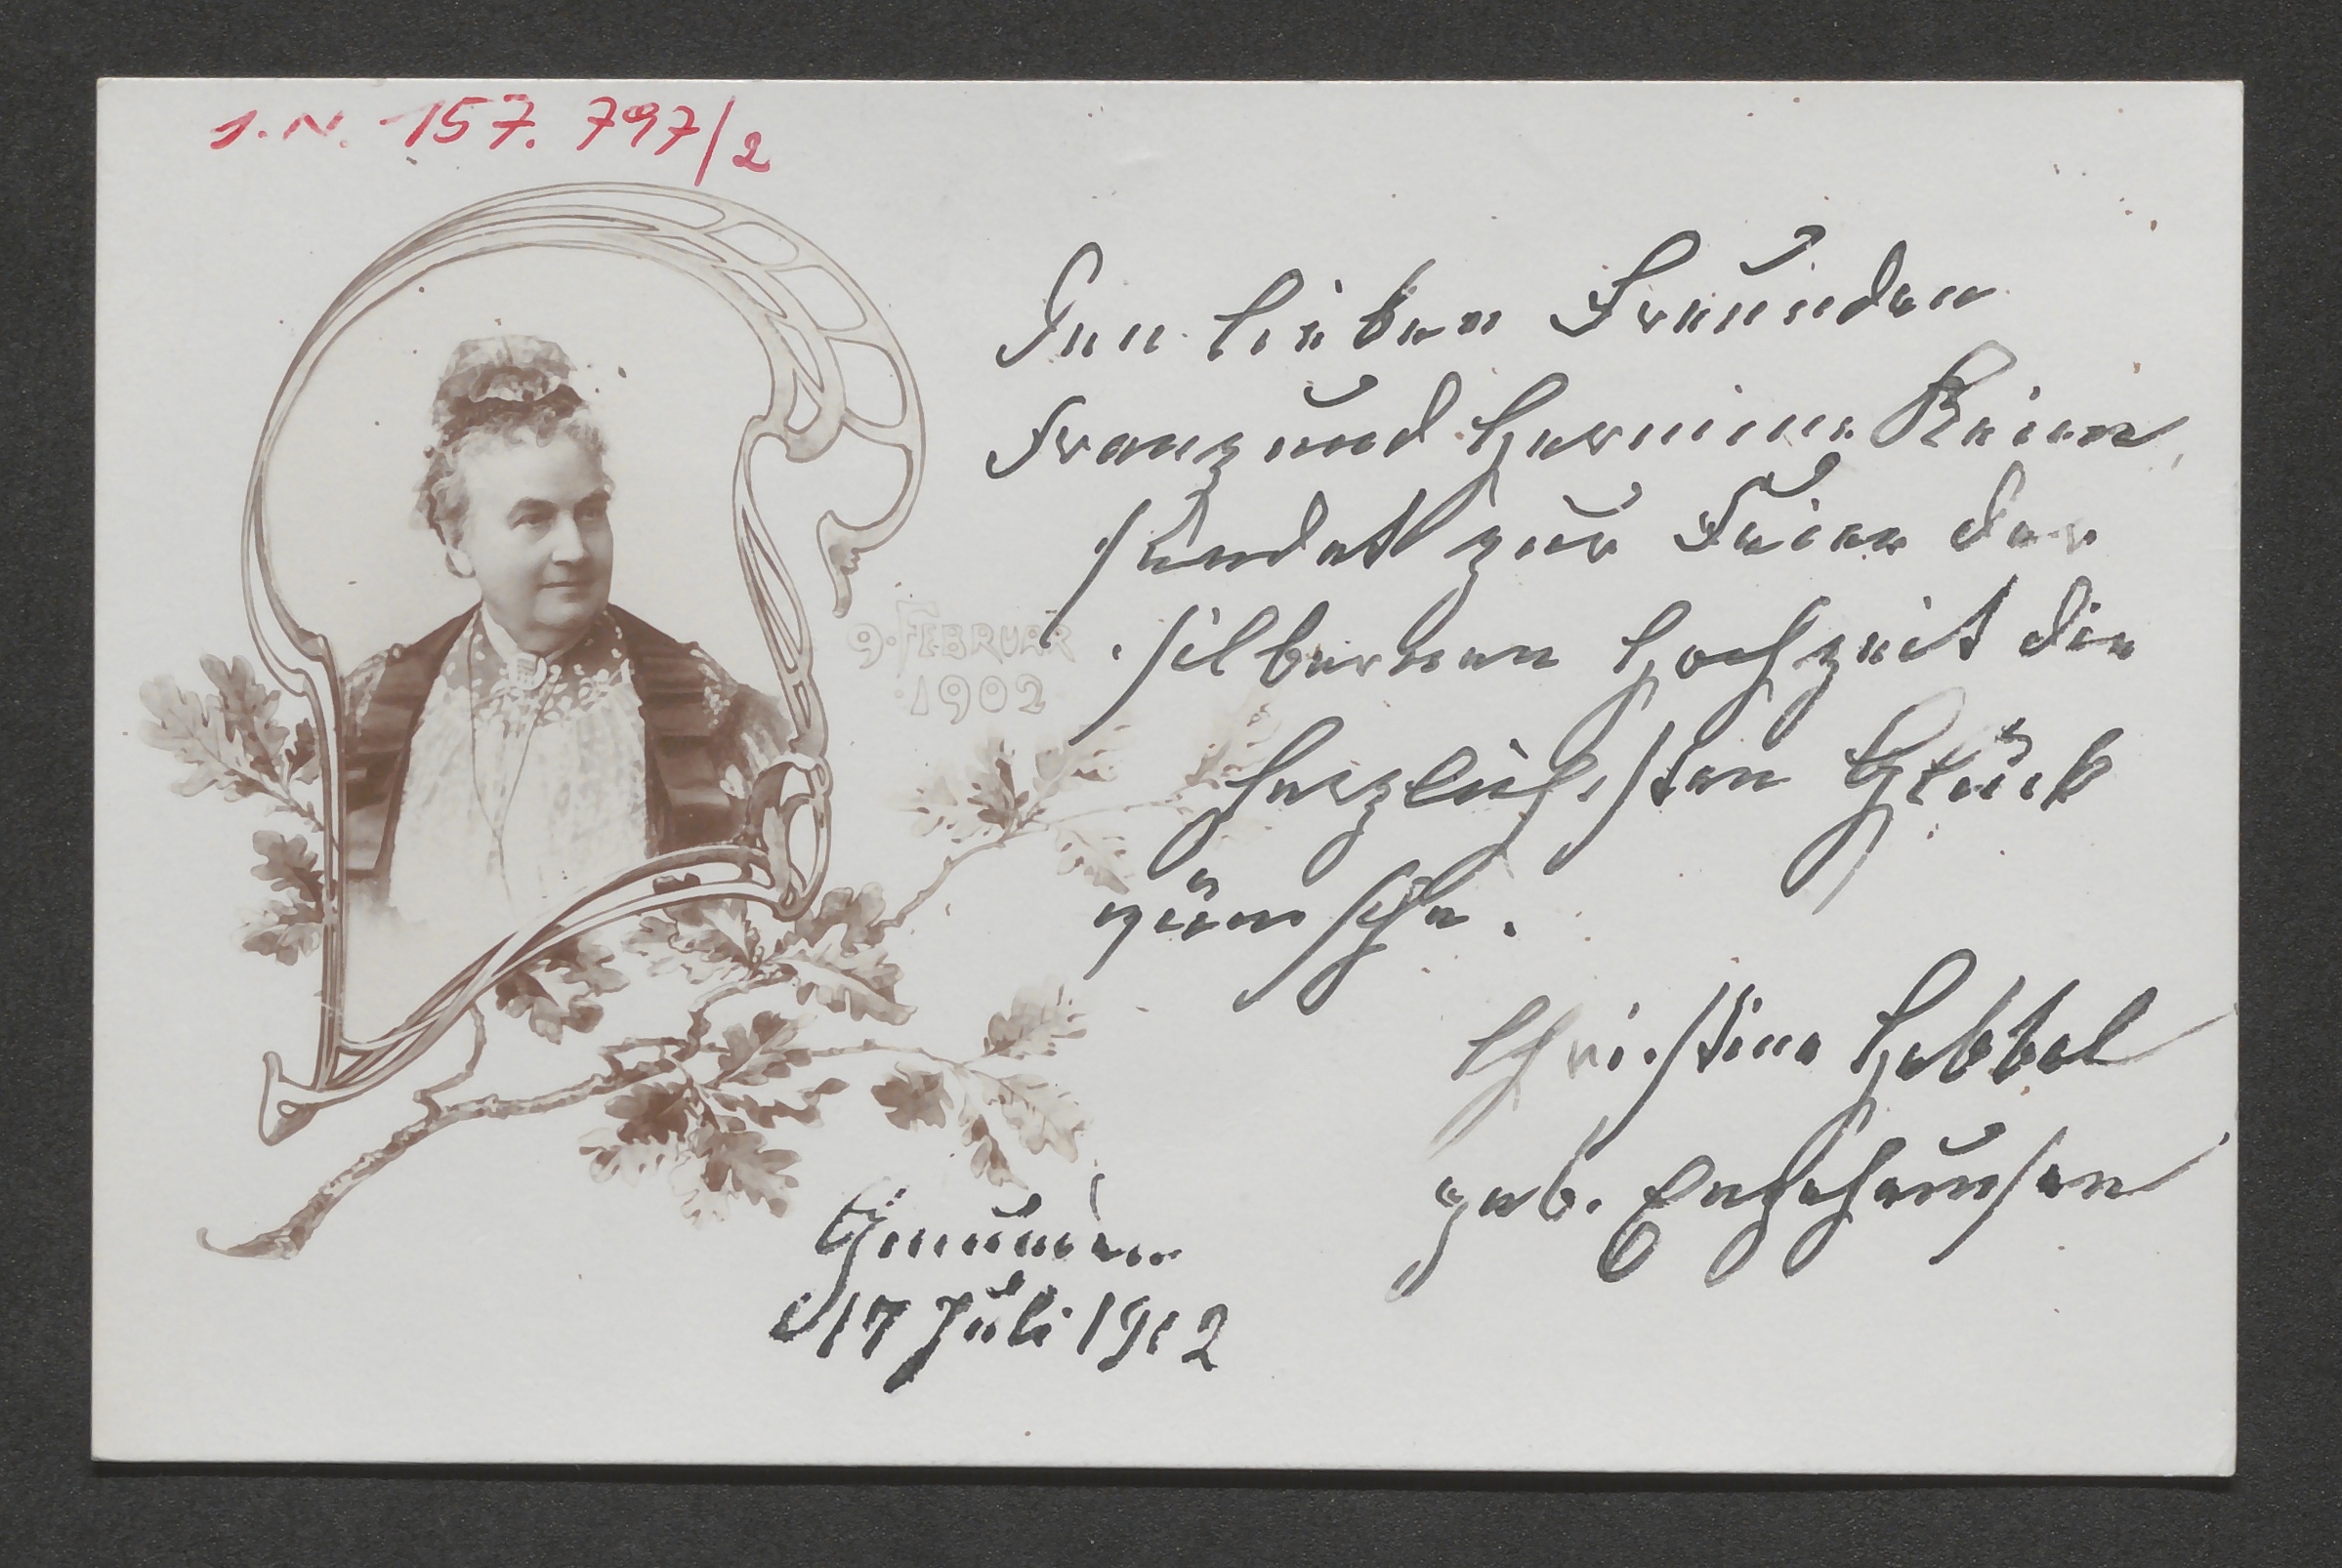 I.N. 157.797/2
9. FEBRUAR
1902
Den lieben Freunden
Franz und Hermine
sendet zur Feier der
silbernen Hochzeit die
herzlichsten Glück
wünsche.
Christine Hebbel
geb. Engehausen
Gmunden
17 Juli 1912